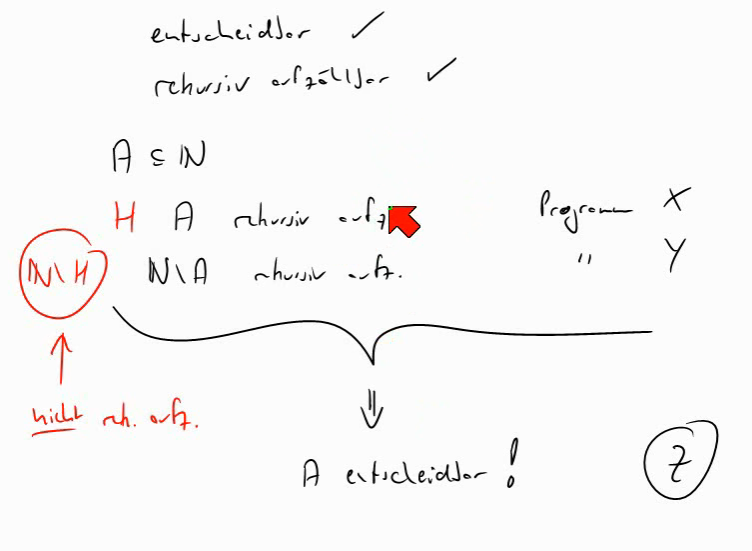 entscheidbar ✓
rekursiv aufzählbar ✓
A ⊆ ℕ
H A rekursiv aufz. Programm X
ℕ\H ℕ\A rekursiv aufz. " Y
⇓
nicht rek. aufz.
A entscheidbar! Z